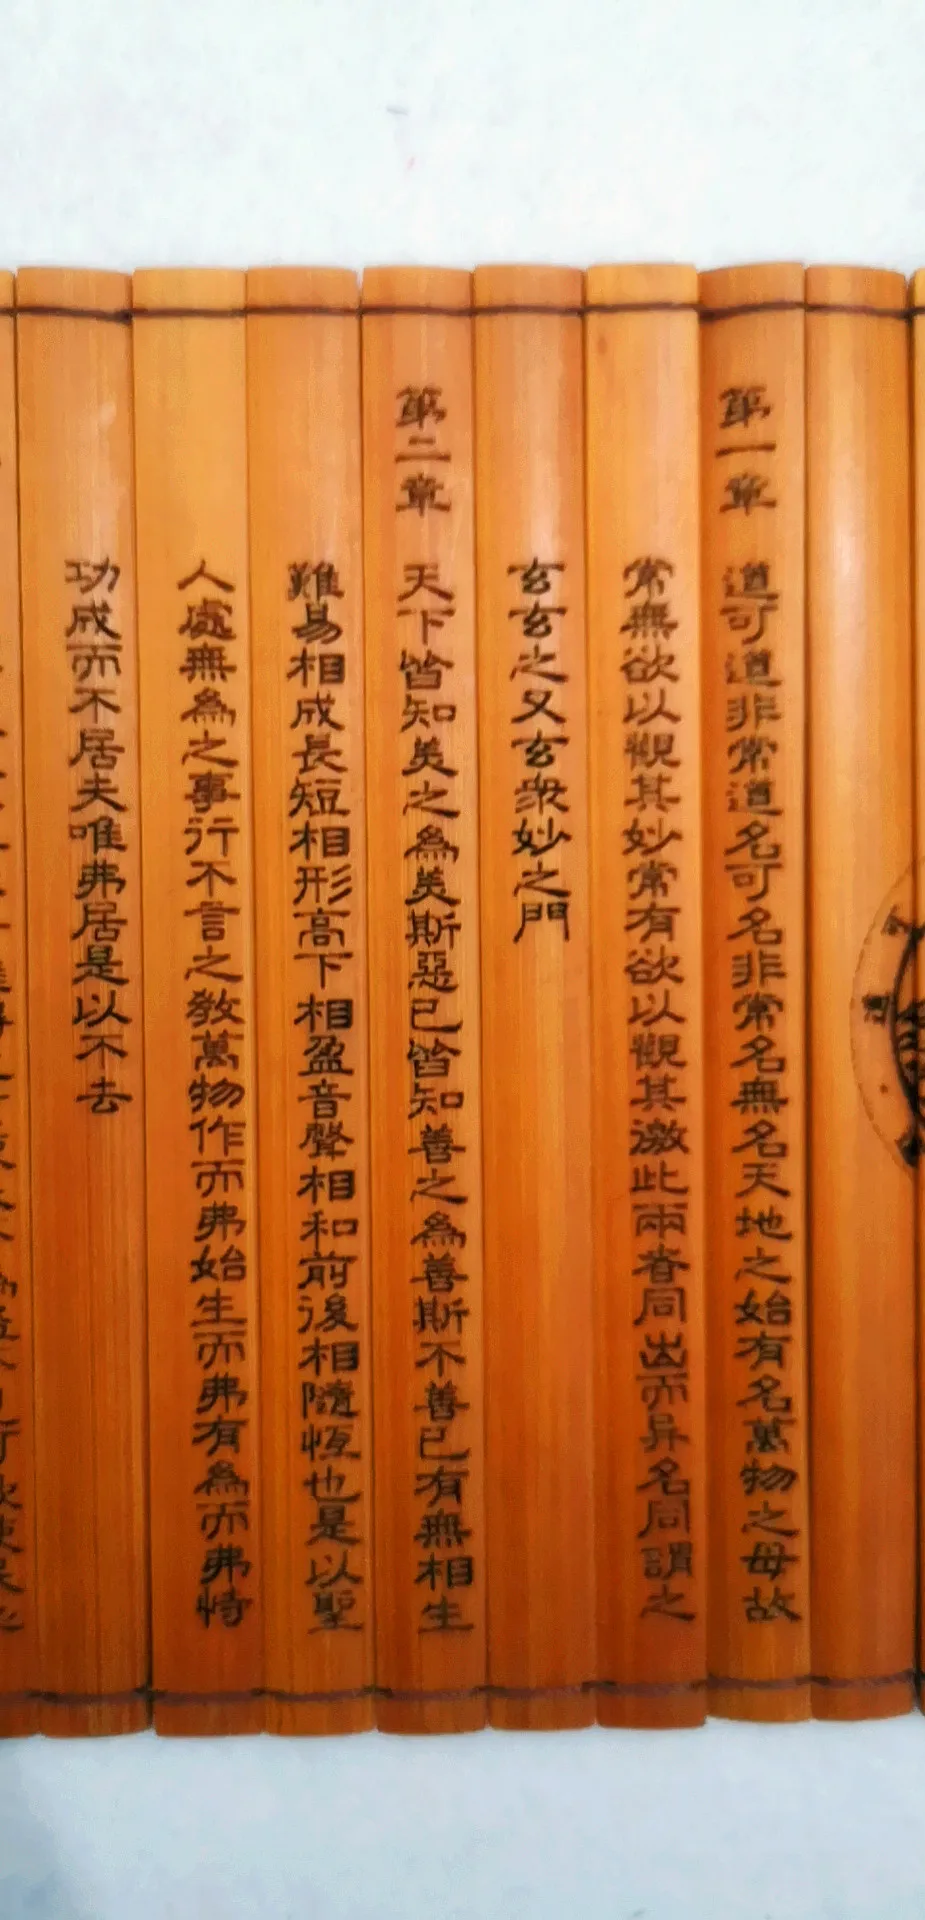 第一章 道可道非常道名可名非常名無名天地之始有名萬物之母故
常無欲以觀其妙常有欲以觀其激此兩者同出而异名同謂之
玄玄之又玄衆妙之門
第二章 天下皆知美之為美斯惡已皆知善之為善斯不善已有無相生
難易相成長短相形高下相盈音聲相和前後相隨恆也是以聖
人處無為之事行不言之教萬物作而弗始生而弗有為而弗恃
功成而不居夫唯弗居是以不去